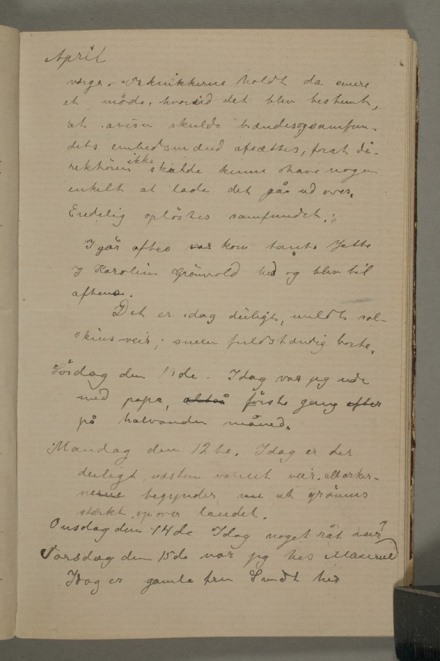 April
værge. Teknikkerne holdt da senere
et möde, hvorved det blev bestemt,
at avisen skulde
dets embedsmænd afsættes, forat di-
rektören ikke skulde kunne have nogen
enkelt at lade det gaa ud over.
Endelig oplöstes samfundet.
Igår aften kom tante Jette
og Karoline Grönvold hid og blev til
aftens.
Det er idag deiligt, mildt sol-
skinsveir; sneen fuldstændig borte.
Idag var jeg ude
med papa, förste gang efter
på halvanden måned.
Mandag den 12te. Idag er det
deiligt, næsten varmt veir. Markerne
begynder at grönnes
stærkt opover landet.
Onsdag den 14de Idag noget råt veir
Torsdag den 15de var jeg hos
Idag er gamle fru Sundt hid